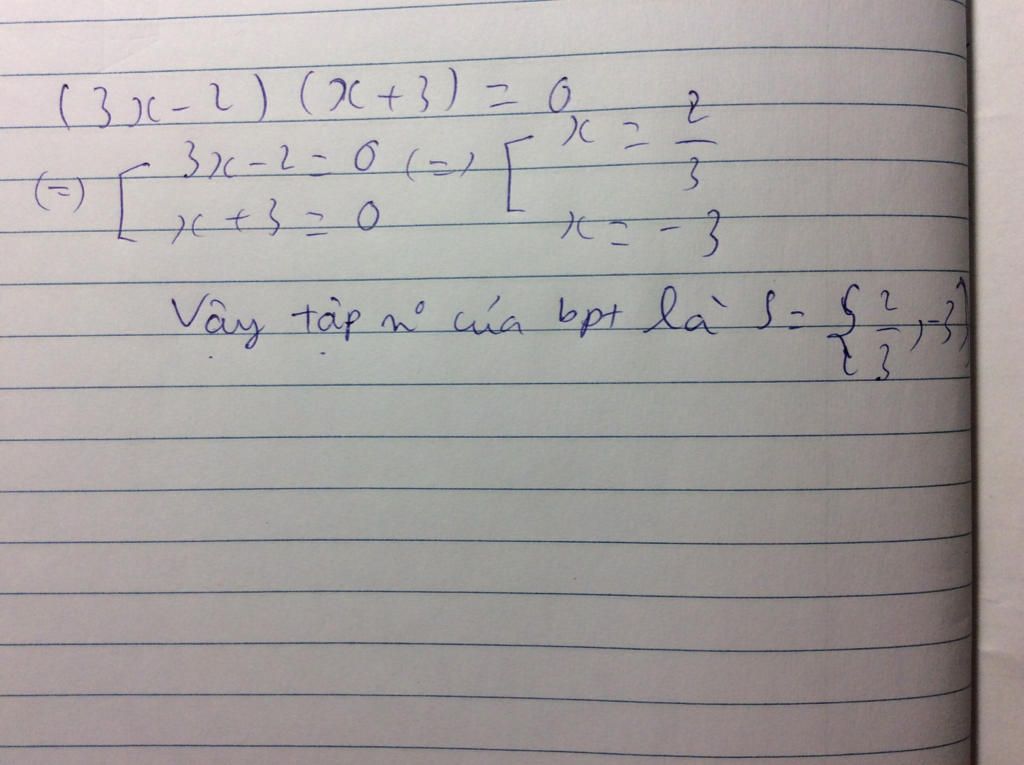 (3x-2) (x+3) = 0
(=) [ 3x-2=0 (=) [ x = 2/3
x+3=0 x=-3
Vậy tập n° của bpt là S = {2/3, -3}